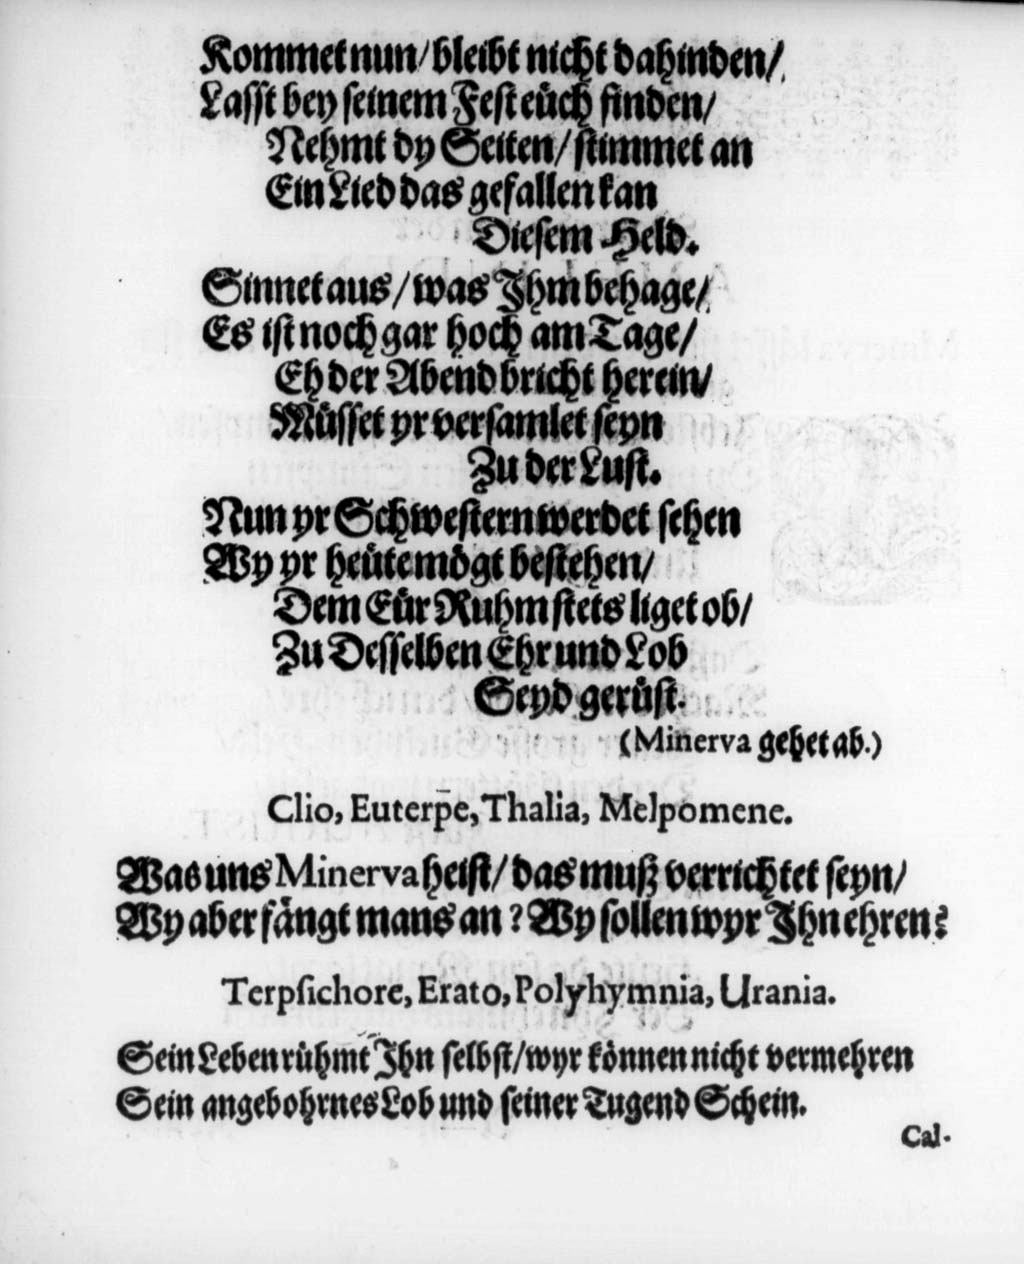 Kommet nun/ bleibt nicht dahinden/
Lasst bey seinem Fest eüch finden/
Nehmt dy Seiten/ stimmet an
Ein Lied das gefallen kan
Diesem Held.
Sinnet aus/ was Ihm behage/
Es ist noch gar hoch am Tage/
Eh der Abend bricht herein/
Müsset yr versamlet seyn
Zu der Lust.
Nun yr Schwestern werdet sehen
Wy yr heüte mögt bestehen/
Dem Eür Ruhm stets liget ob/
Zu Desselben Ehr und Lob
Seyd gerüst.
(Minerva gehet ab.)
Clio, Euterpe, Thalia, Melpomene.
Was uns Minerva heist/ das muß verrichtet seyn/
Wy aber fängt mans an? Wy sollen wyr Ihn ehren?
Terpsichore, Erato, Polyhymnia, Urania.
Sein Leben rühmt Ihn selbst/ wyr können nicht vermehren
Sein angebohrnes Lob und seiner Tugend Schein.
Cal-